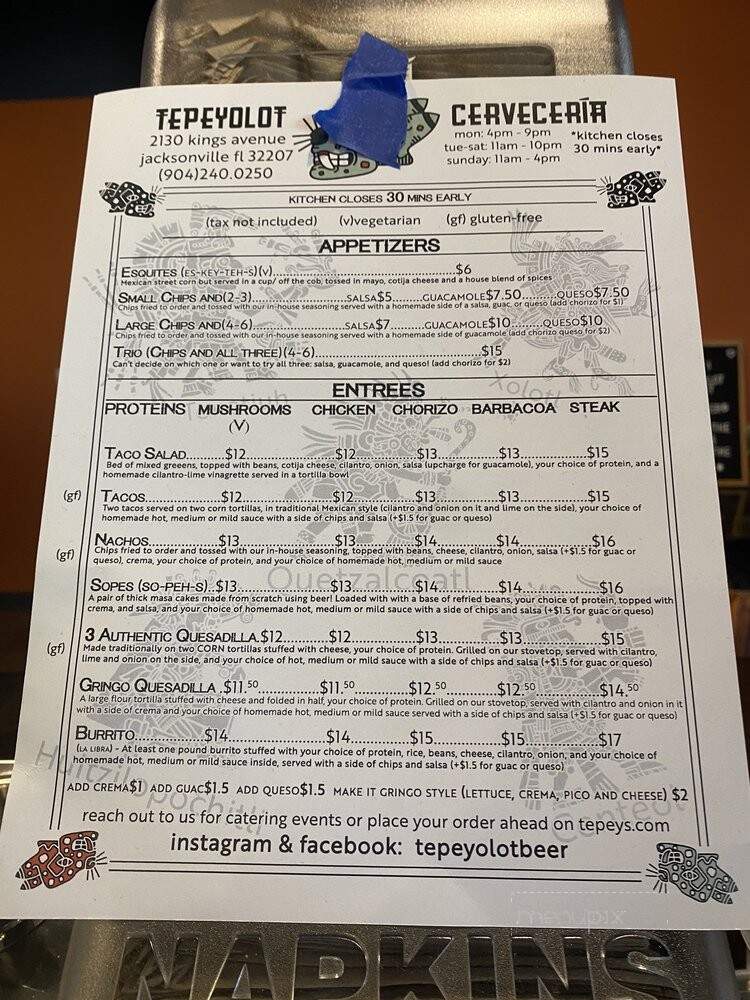 TEPEYOLOT CERVECERÍA
2130 kings avenue
jacksonville fl 32207
(904)240.0250
mon: 4pm - 9pm
tue-sat: 11am - 10pm
sunday: 11am - 4pm
*kitchen closes
30 mins early*
KITCHEN CLOSES 30 MINS EARLY
(tax not included) (v)vegetarian (gf) gluten-free
APPETIZERS
ESQUITES (ES-KEY-TEH-S)(V)..........$6
Mexican street corn but served in a cup/ off the cob, tossed in mayo, cotija cheese and a house blend of spices
SMALL CHIPS AND(2-3)..........SALSA$5..........GUACAMOLE$7.50..........QUESO$7.50
Chips fried to order and tossed with our in-house seasoning served with a homemade side of a salsa, guac, or queso (add chorizo for $1)
LARGE CHIPS AND(4-6)..........SALSA$7..........GUACAMOLE$10..........QUESO$10
Chips fried to order and tossed with our in-house seasoning served with a homemade side of guacamole (add chorizo queso for $2)
TRIO (CHIPS AND ALL THREE)(4-6)..........$15
Can't decide on which one or want to try all three: salsa, guacamole, and queso! (add chorizo for $2)
ENTREES
PROTEINS MUSHROOMS CHICKEN CHORIZO BARBACOA STEAK
(V)
TACO SALAD..........$12..........$12..........$13..........$13..........$15
Bed of mixed greeens, topped with beans, cotija cheese, cilantro, onion, salsa (upcharge for guacamole), your choice of protein, and a
homemade cilantro-lime vinagrette served in a tortilla bowl
(gf) TACOS..........$12..........$12..........$13..........$13..........$15
Two tacos served on two corn tortillas, in traditional Mexican style (cilantro and onion on it and lime on the side), your choice of
homemade hot, medium or mild sauce with a side of chips and salsa (+$1.5 for guac or queso)
(gf) NACHOS..........$13..........$13..........$14..........$14..........$16
Chips fried to order and tossed with our in-house seasoning, topped with beans, cheese, cilantro, onion, salsa (+$1.5 for guac or
queso), crema, your choice of protein, and your choice of homemade hot, medium or mild sauce
Quetzalcoatl
SOPES (SO-PEH-S)..$13..........$13..........$14..........$14..........$16
A pair of thick masa cakes made from scratch using beer! Loaded with with a base of refried beans, your choice of protein, topped with
crema, and salsa, and your choice of homemade hot, medium or mild sauce with a side of chips and salsa (+$1.5 for guac or queso)
(gf) 3 AUTHENTIC QUESADILLA.$12..........$12..........$13..........$13..........$15
Made traditionally on two CORN tortillas stuffed with cheese, your choice of protein. Grilled on our stovetop, served with cilantro,
lime and onion on the side, and your choice of hot, medium or mild sauce with a side of chips and salsa (+$1.5 for guac or queso)
GRINGO QUESADILLA .$11.50..........$11.50..........$12.50..........$12.50..........$14.50
A large flour tortilla stuffed with cheese and folded in half, your choice of protein. Grilled on our stovetop, served with cilantro and onion in it
with a side of crema and your choice of homemade hot, medium or mild sauce served with a side of chips and salsa (+$1.5 for guac or queso)
BURRITO..........$14..........$14..........$15..........$15..........$17
(LA LIBRA) - At least one pound burrito stuffed with your choice of protein, rice, beans, cheese, cilantro, onion, and your choice of
homemade hot, medium or mild sauce inside, served with a side of chips and salsa (+$1.5 for guac or queso)
Huitzilopochtli
ADD CREMA$1 ADD GUAC$1.5 ADD QUESO$1.5 MAKE IT GRINGO STYLE (LETTUCE, CREMA, PICO AND CHEESE) $2
reach out to us for catering events or place your order ahead on tepeys.com
instagram & facebook: tepeyolotbeer
menupix
NAPKINS